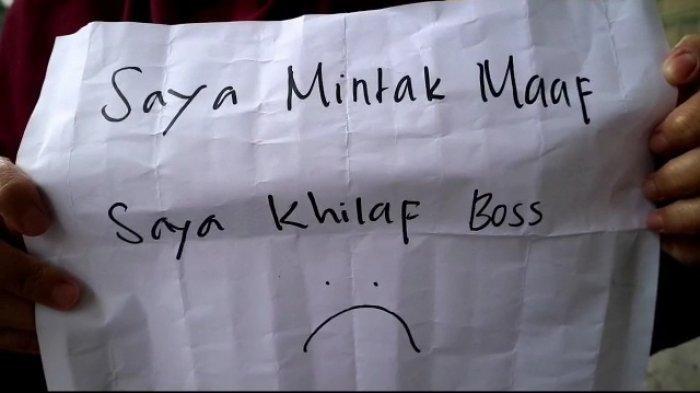 Saya Mintak Maaf
Saya Khilaf Boss